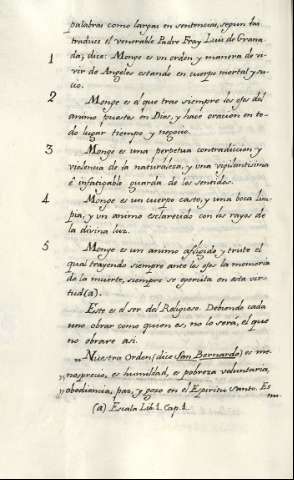 palabras como largas en sentencias, segun las
traduce el venerable Padre Fray Luis de Grana
da, dice: Monge es vn orden y manera de vi-
1
vir de Angeles estando en cuerpo mortal y su-
cio.
2
Monge es el que trae siempre los ojos del
animo puestos en Dios, y hace oracion en to-
do lugar tiempo y negocio.
3
Monge es una perpetua contradiccion y
violencia de la naturaleza, y una vigilantisima
è infatigable guarda de los sentidos.
4
Monge es un cuerpo casto, y una boca lim-
pia, y un animo esclarecido con los rayos de
la divina luz.
5
Monge es un animo afligido y triste el
qual trayendo siempre ante los ojos la memoria
de la muerte, siempre se egercita en esta vir-
tud (a).
Este es el ser del Religioso. Debiendo cada
uno obrar como quien es, no lo será, el que
no obrare asi.
„Nuestra Orden (dice San Bernardo) es me-
„nosprecio, es humildad, es pobreza voluntaria,
„obediencia, paz, y gozo en el Espiritu santo. Es
(a) Escala Lib. 1. Cap. 1.